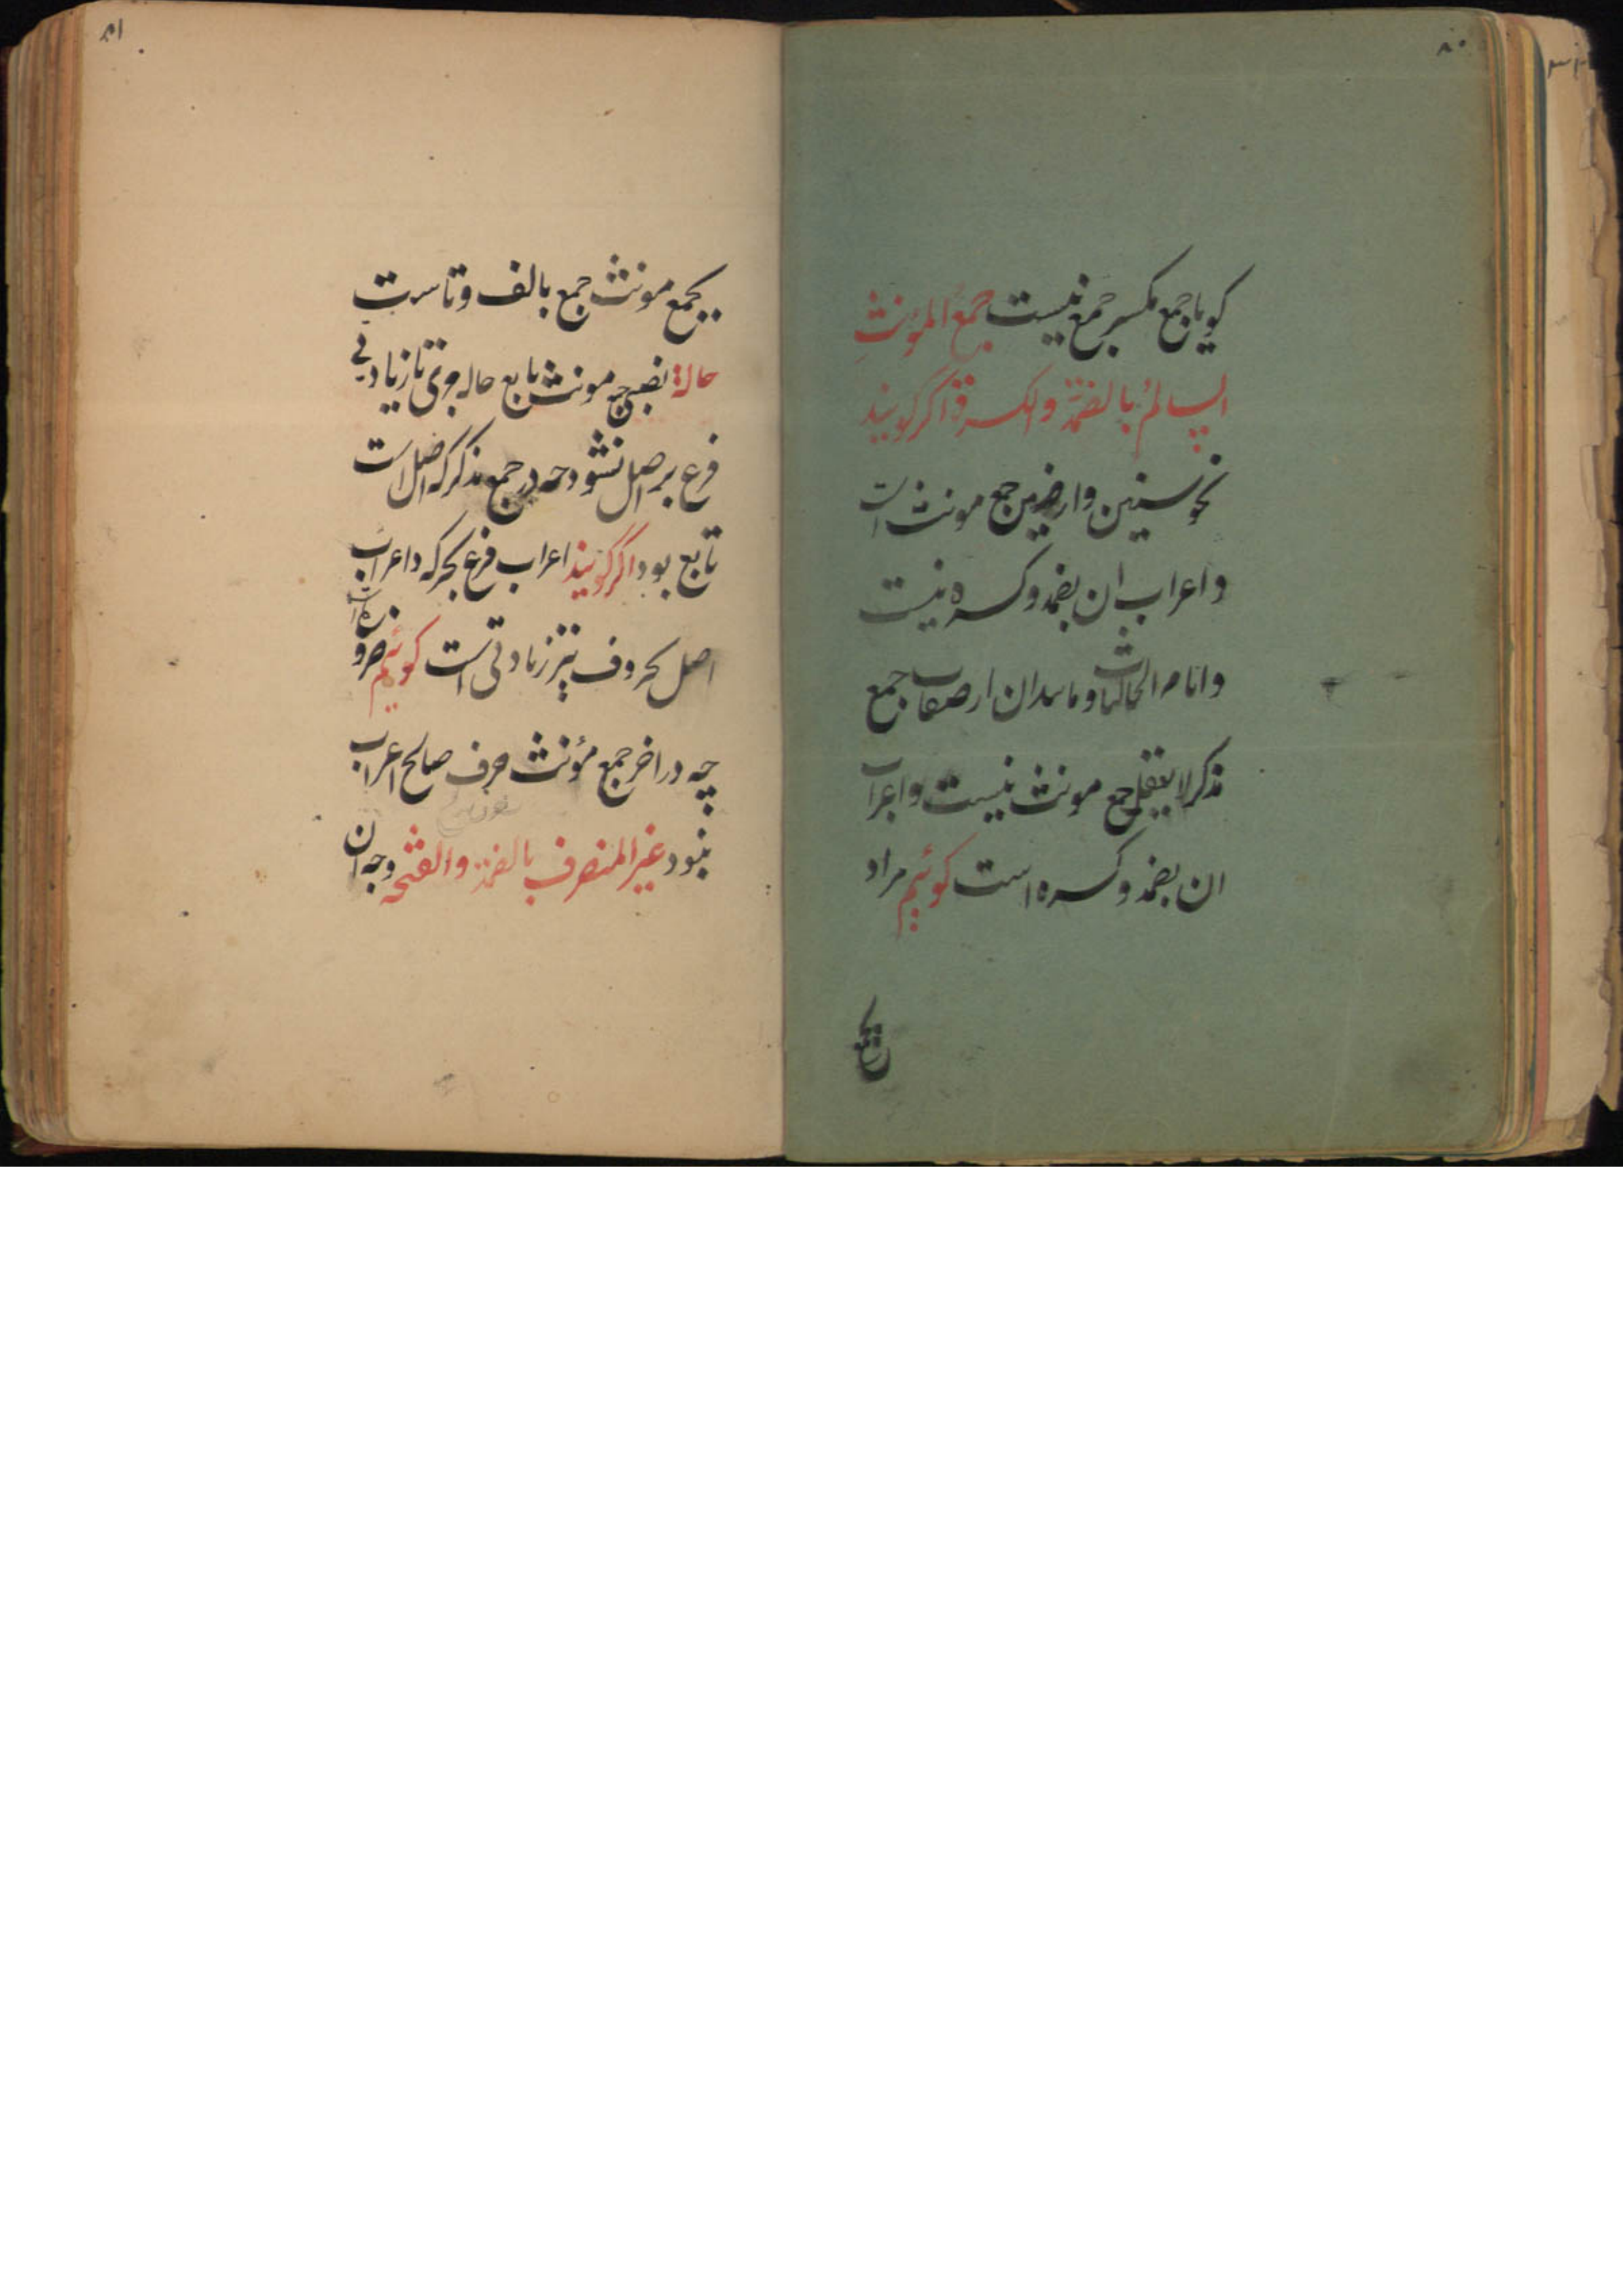 ۸۰
کویا جمع مکسر جمع نیست جمع المؤنث
السالمُ بالضمة والکسرة اگر کویند
نحو سنین وارضین جمع مونث است
واعراب ان بضمه وکسره نیست
الخالیات و مانند ان از صفات جمع
مذکر لا یعقل جمع مونث نیست واعراب
ان بضمه وکسره است کوئیم مراد
۸۱
بجمع مونث جمع بالف وتاست
حالة نصبی جمع مونث تابع حاله جری تا زیادتی
فرع بر اصل نشود چه در جمع مذکر که اصل است
تابع بود اگر کویند اعراب فرع بحرکه واعراب
اصل بحروف نیز زیادتی است کوئیم
چه در اخر جمع مؤنث حرف صالح اعراب
نبود غیر المنصرف بالضمة والفتحه وجه ان